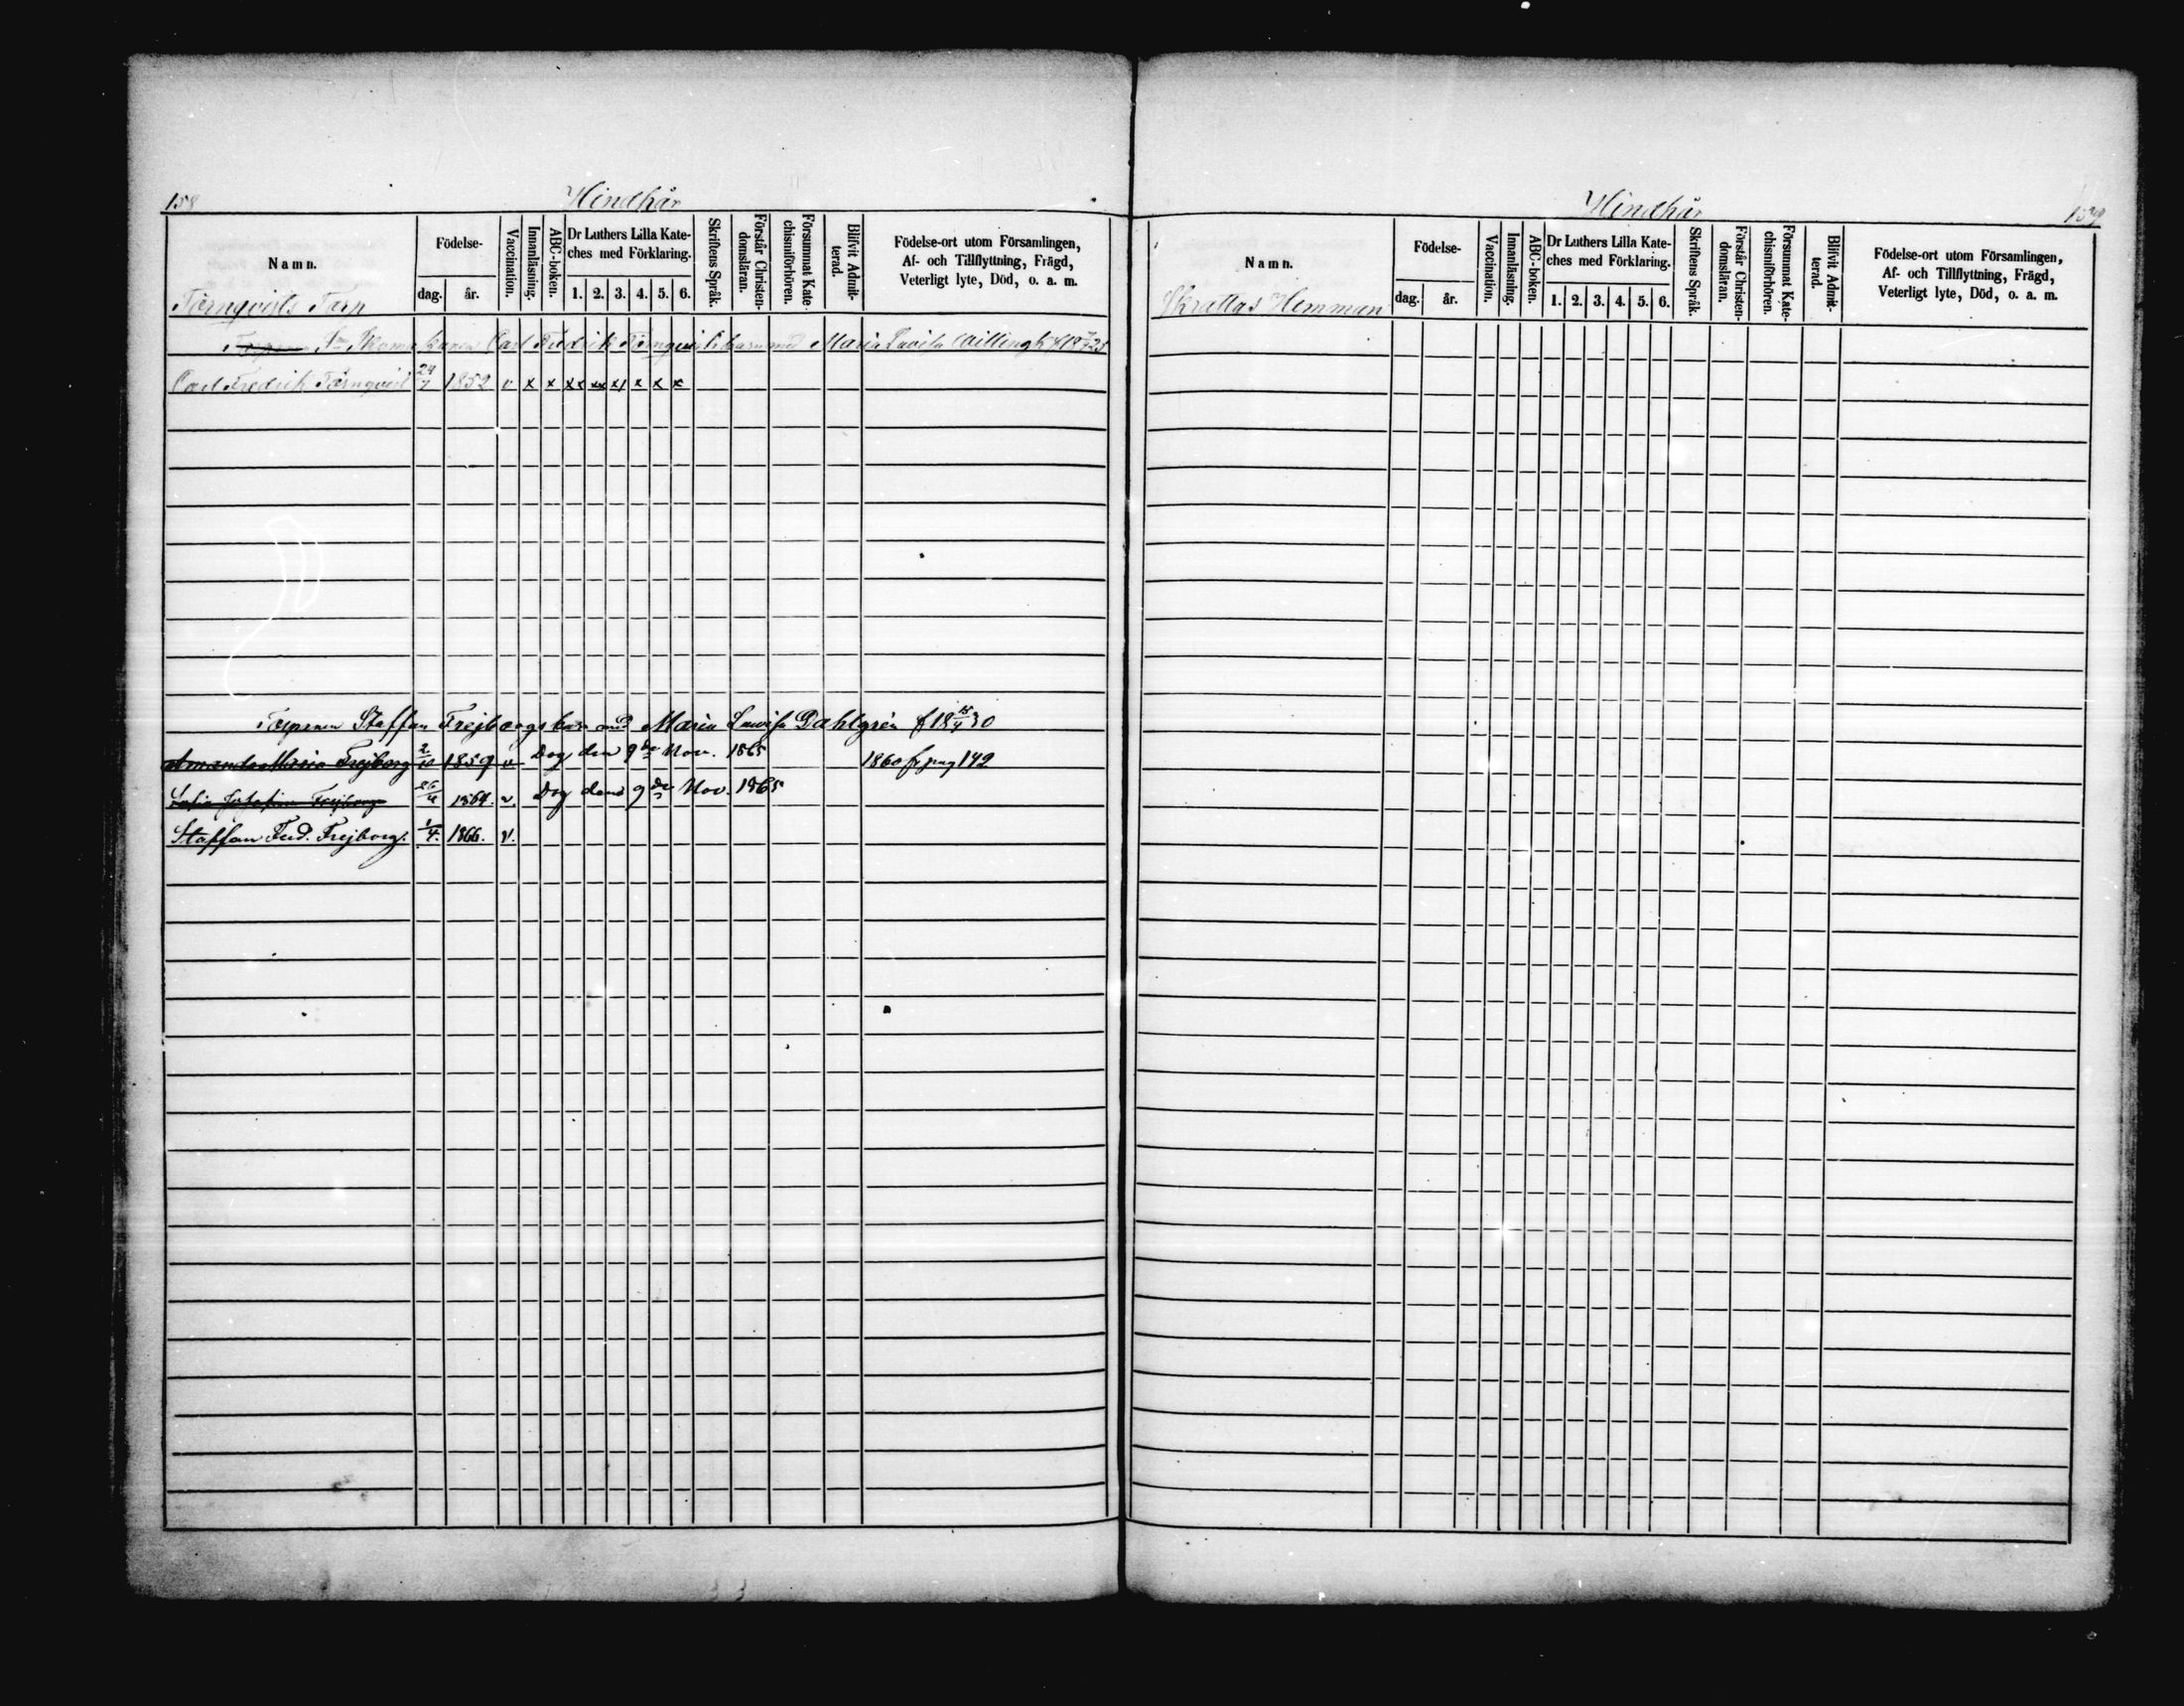 158
Hindhår
Namn.
Födelse-
dag.
år.
Vaccination.
Innanläsning.
ABC-boken.
Dr Luthers Lilla Kate-
ches med Förklaring.
1. 2. 3. 4. 5. 6.
Skriftens Språk.
Förstår Christen-
domsläran.
Försummat Kate
chismiförhören.
Blifvit Admit-
terad.
Födelse-ort utom Församlingen,
Af- och Tillflyttning, Frägd,
Veterligt lyte, Död, o. a. m.
Törnqvists Torp
Carl Fredrik Törnqvists barn med Maria Lovisa
Carl Fredrik Törnqvist 24/7 1852 v x x xx xx x x x
Torparen Staffan Frejborgs barn med Maria Lovisa Dahlgrén f 18 15/4 30
Amanda Maria Frejborg 2/10 1859 v Dog den 9de Nov. 1865 1860 fr pag 142
Frejborg 26/4 1864. v. Dog den 9de Nov. 1865
Staffan Ferd. Frejborg. 1/4. 1866. v.
Hindhår
159
Namn.
Födelse-
dag.
år.
Vaccination.
Innanläsning.
ABC-boken.
Dr Luthers Lilla Kate-
ches med Förklaring.
1. 2. 3. 4. 5. 6.
Skriftens Språk.
Förstår Christen-
domsläran.
Försummat Kate-
chismiförhören.
Blifvit Admit-
terad.
Födelse-ort utom Församlingen,
Af- och Tillflyttning, Frägd,
Veterligt lyte, Död, o. a. m.
Skrattas Hemman